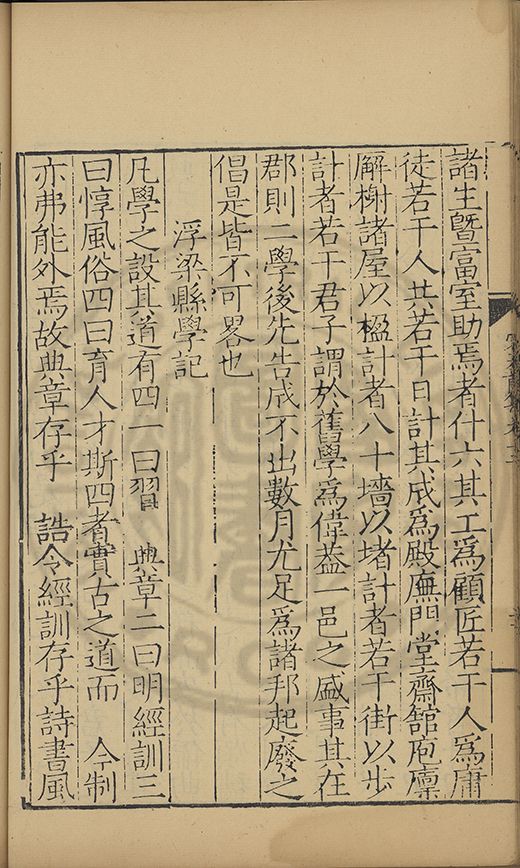 諸生曁富室助焉者什六其工爲顧匠若干人爲庸
徒若干人共若干日計其成爲殿廡門堂齋舘庖廩
廨榭諸屋以楹計者八十墻以堵計者若干街以步
計者若干君子謂於舊學爲偉葢一邑之盛事其在
郡則二學後先告成不出數月尤足爲諸邦起廢之
倡是皆不可畧也
浮梁縣學記
凡學之設其道有四一曰習　典章二曰明經訓三
曰惇風俗四曰育人才斯四者實古之道而　今制
亦弗能外焉故典章存乎　誥令經訓存乎詩書風